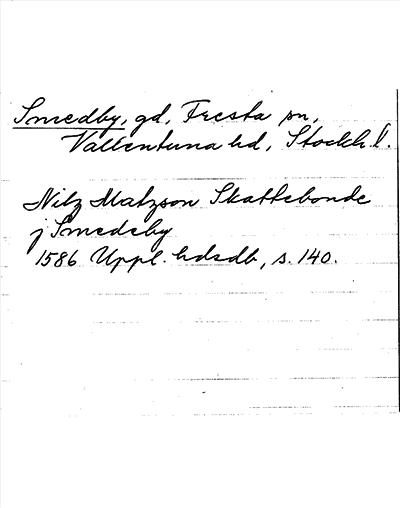 Smedby, gd, Fresta sn,
Vallentuna hd, Stockh. l.
Nilz Matzson Skattebonde
j Smedeby
1586 Uppl. hdsdb, s. 140.